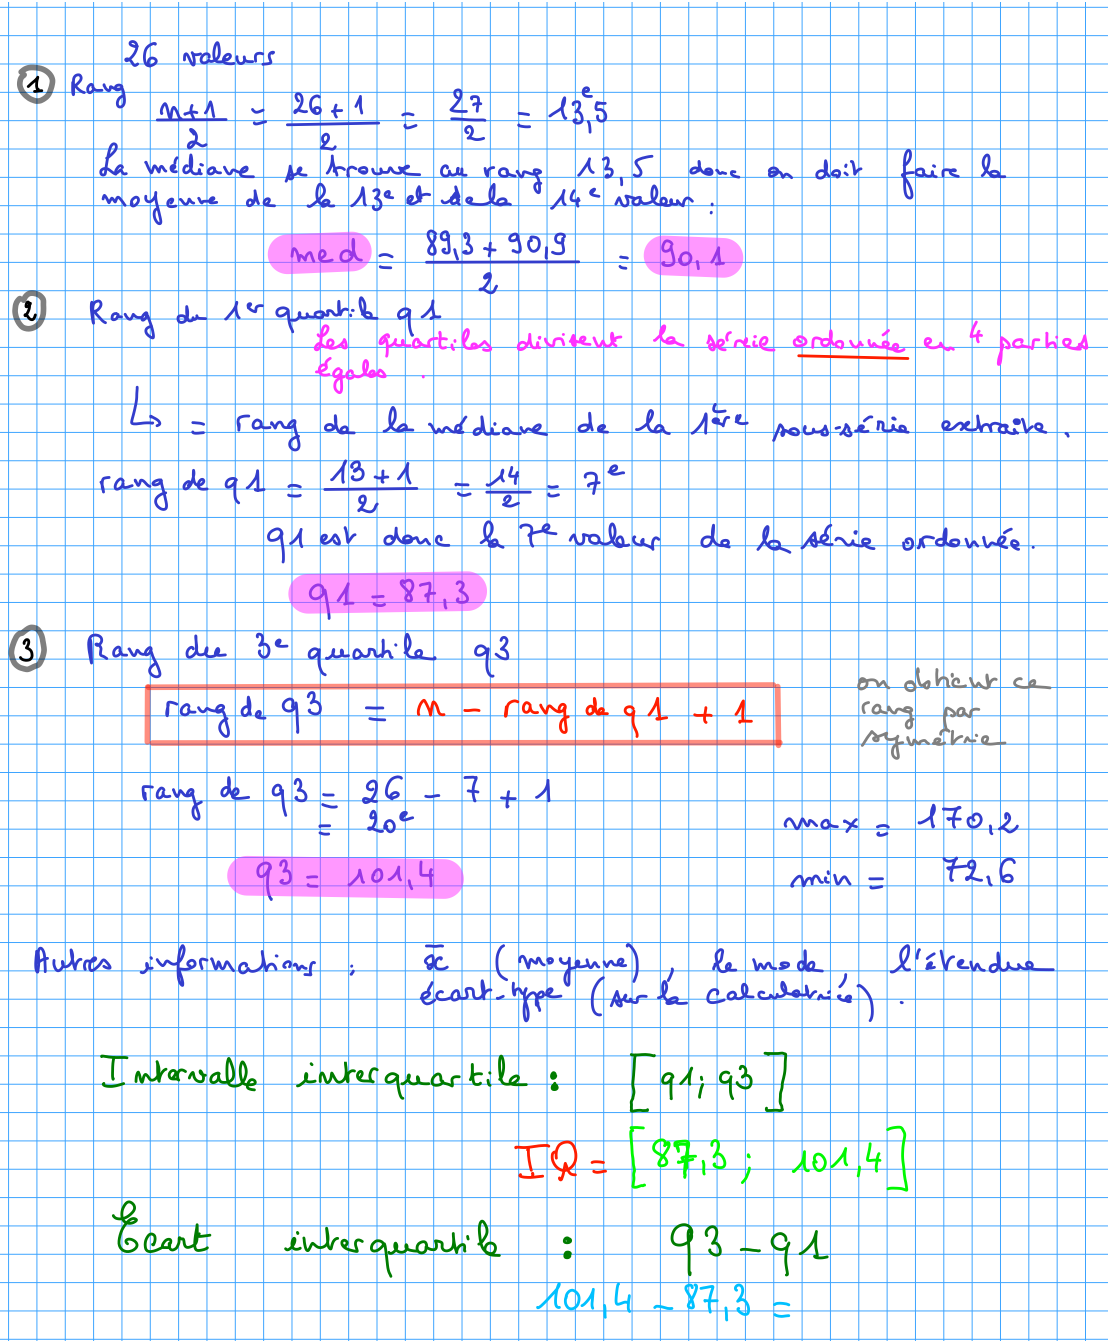 26 valeurs
1 Rang
n+1/2 = 26+1/2 = 27/2 = 13,5e
La médiane se trouve au rang 13,5 donc on doit faire la
moyenne de la 13e et de la 14e valeur.
med = 89,3 + 90,9 / 2 = 90,1
2 Rang du 1er quartile q1
Les quartiles divisent la série ordonnée en 4 parties
égales.
↳ = rang de la médiane de la 1ère sous-série extraite.
rang de q1 = 13+1/2 = 14/2 = 7e
q1 est donc la 7e valeur de la série ordonnée.
q1 = 87,3
3 Rang du 3e quartile q3
rang de q3 = n - rang de q1 + 1
on obtient ce
rang par
symétrie
rang de q3 = 26 - 7 + 1
= 20e
max = 170,2
q3 = 101,4
min = 72,6
Autres informations : x̄ (moyenne), le mode, l'étendue
écart-type (sur la calculatrice).
Intervalle interquartile : [q1; q3]
IQ = [87,3 ; 101,4]
Ecart interquartile : q3 - q1
101,4 - 87,3 =